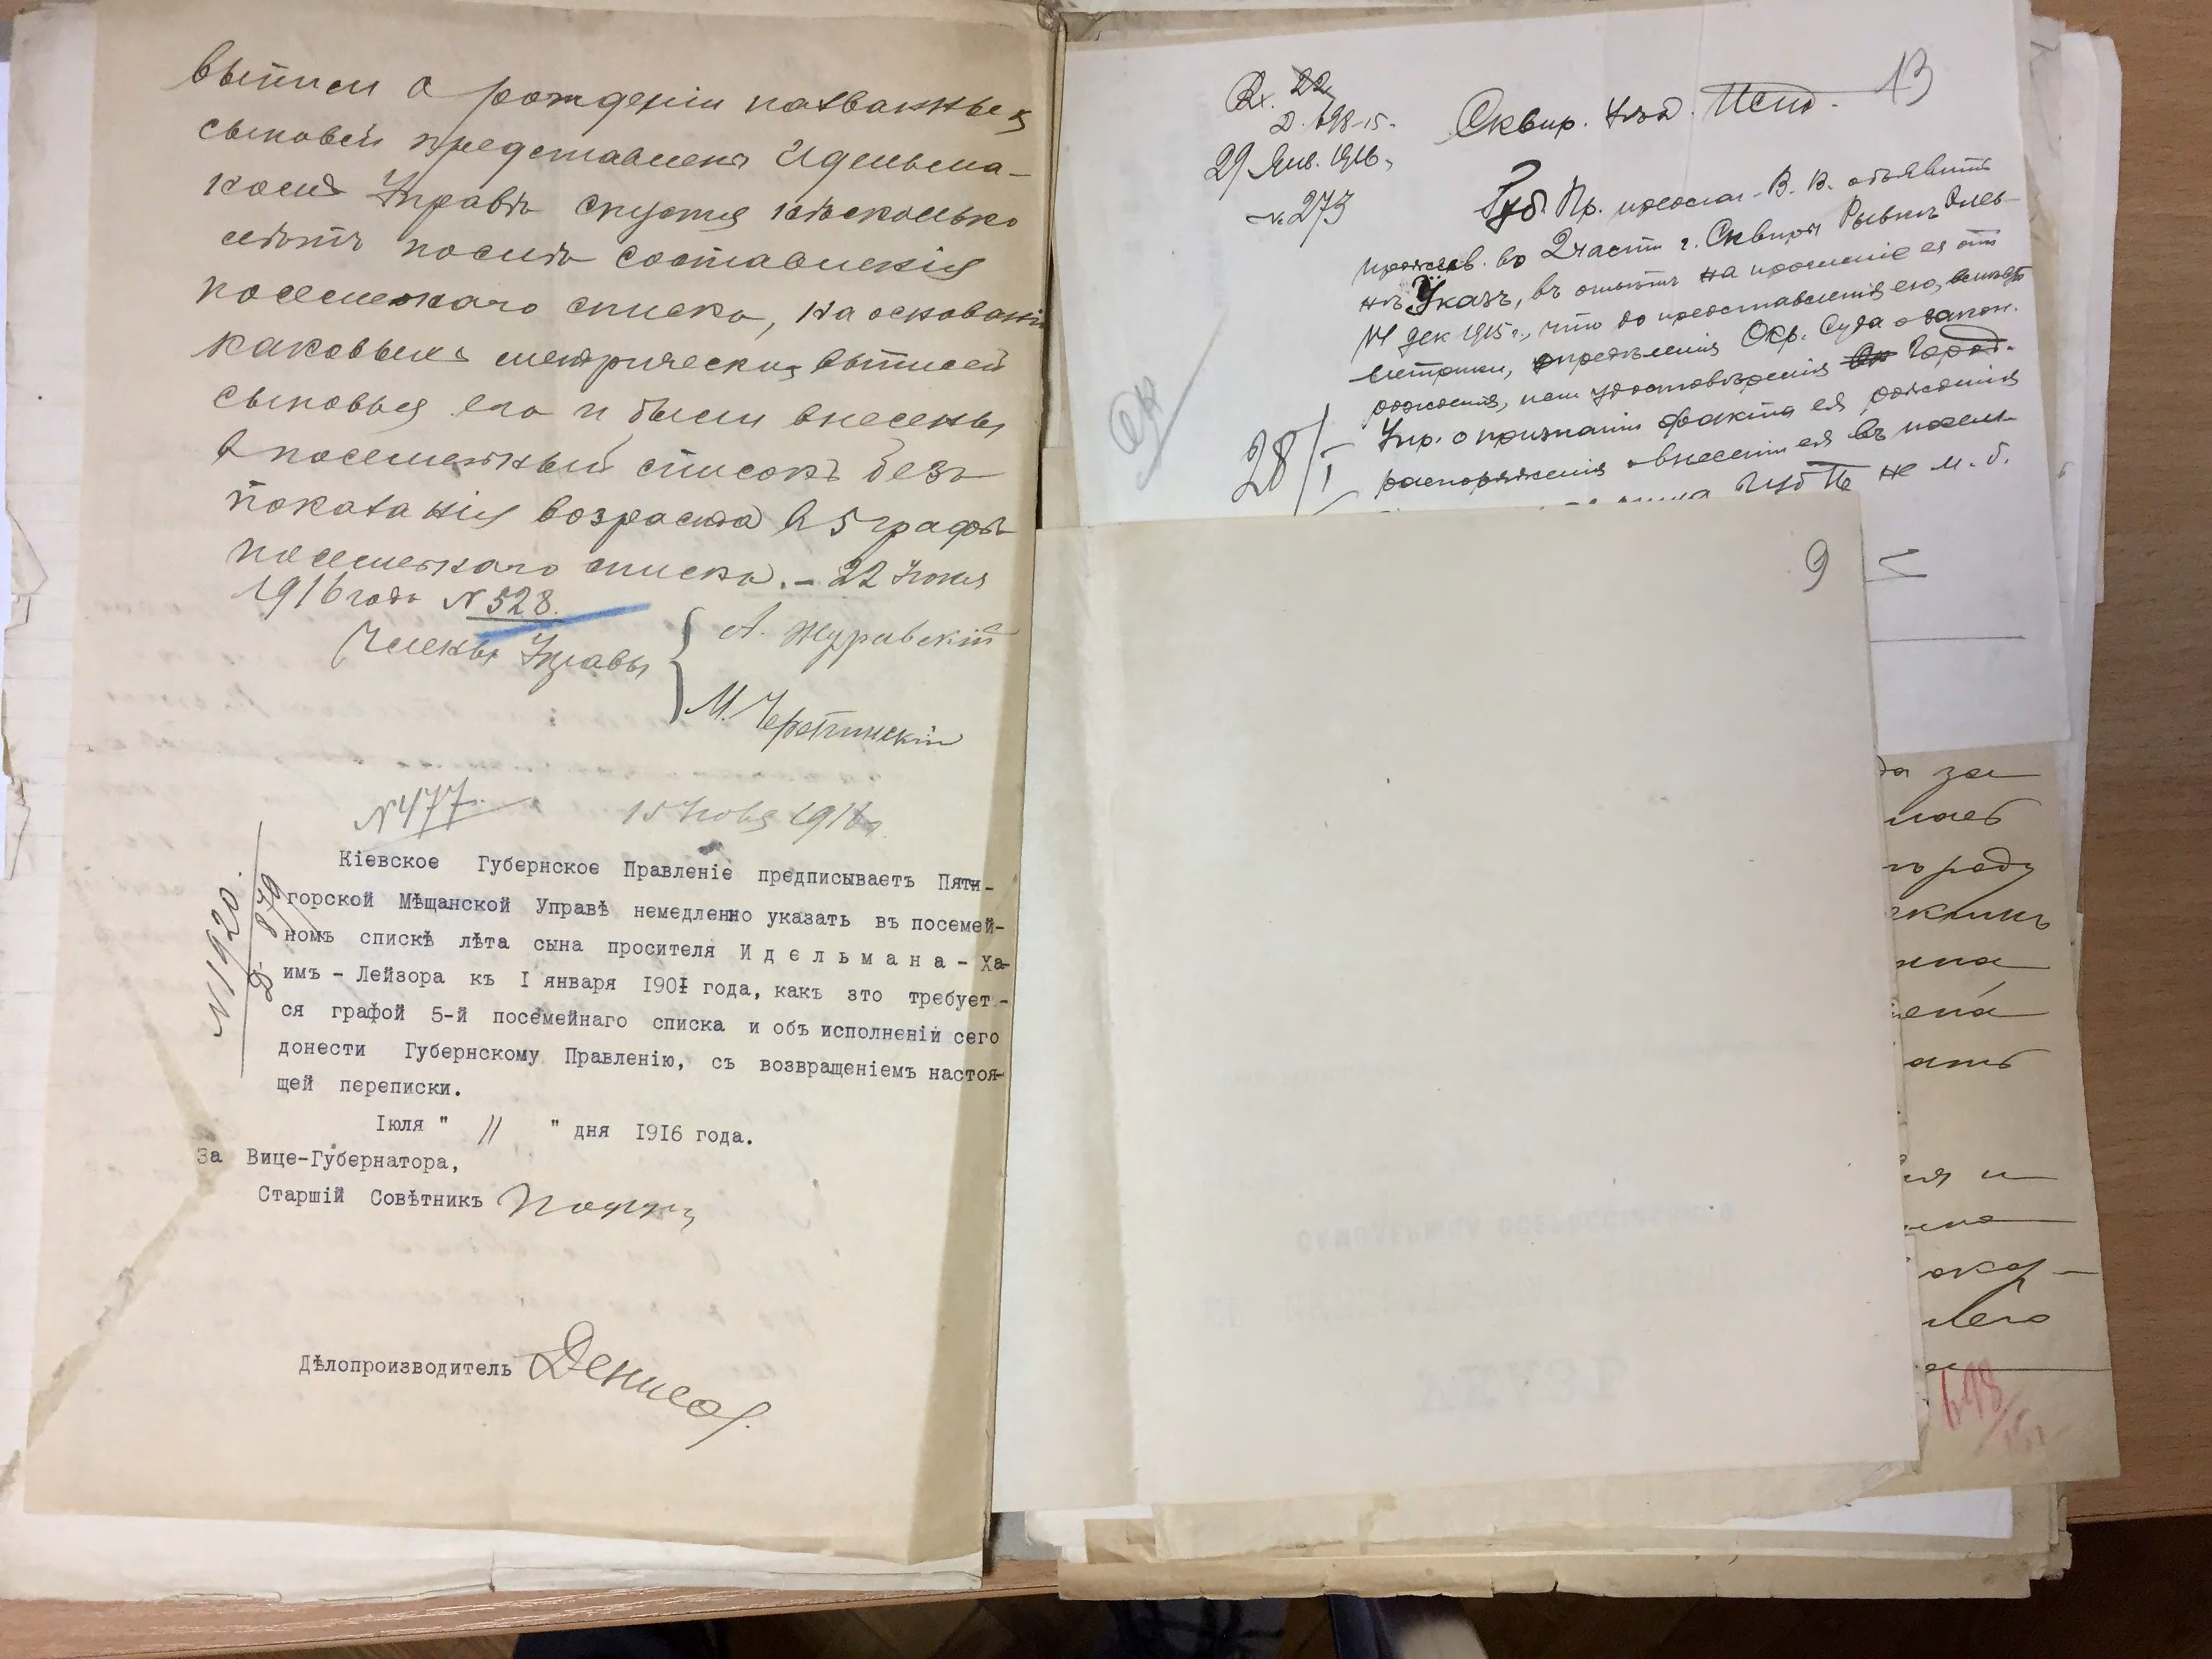 выписи о рожденіи названныхъ
сыновей представлены Идельма-
номъ Управѣ спустя нѣсколько
лѣтъ послѣ составленія
посемейнаго списка, на основаніи
каковыхъ метрическихъ выписей
сыновья его и были внесены
в посемейный списокъ безъ
показанія возраста в 5 графѣ
посемейнаго списка. – 22 Іюня
1916 года N 528.
Члены Управы { А. Журавскій
М.
N 477. 15 1916 г.
N 1920.
Д. 879
Кіевское Губернское Правленіе предписываетъ Пяти-
горской Мѣщанской Управѣ немедленно указать въ посемей-
номъ спискѣ лѣта сына просителя И д е л ь м а н а - Ха-
имъ - Лейзора къ I января 1901 года, какъ это требует-
ся графой 5-й посемейнаго списка и объ исполненій сего
донести Губернскому Правленію, съ возвращеніемъ настоя-
щей переписки.
Іюля " 11 " дня 1916 года.
За Вице-Губернатора,
Старшій Совѣтникъ
Дѣлопроизводитель Денисов
13
22
Д. 698-15.
29 Янв. 1916 г.
№ 273
Сквир. Уѣзд. Исп.
Губ. Пр. предлаг. В. В. объявить
прожив. во 2 части г. Сквиры Рывкѣ
Указъ, въ отвѣтъ на прошеніе ея отъ
14 дек 1915 г., что до представленія ею,
метрики, опредѣленія Окр. Суда о закон.
рожденія, или удостовѣренія Город.
Упр. о признаніи факта ея рожденія
распоряженія о внесеніи ея въ посем.
Губ Пр не м. б.
28/I
9
да за
роду
на
ена
ать
ся и
698
15 г.